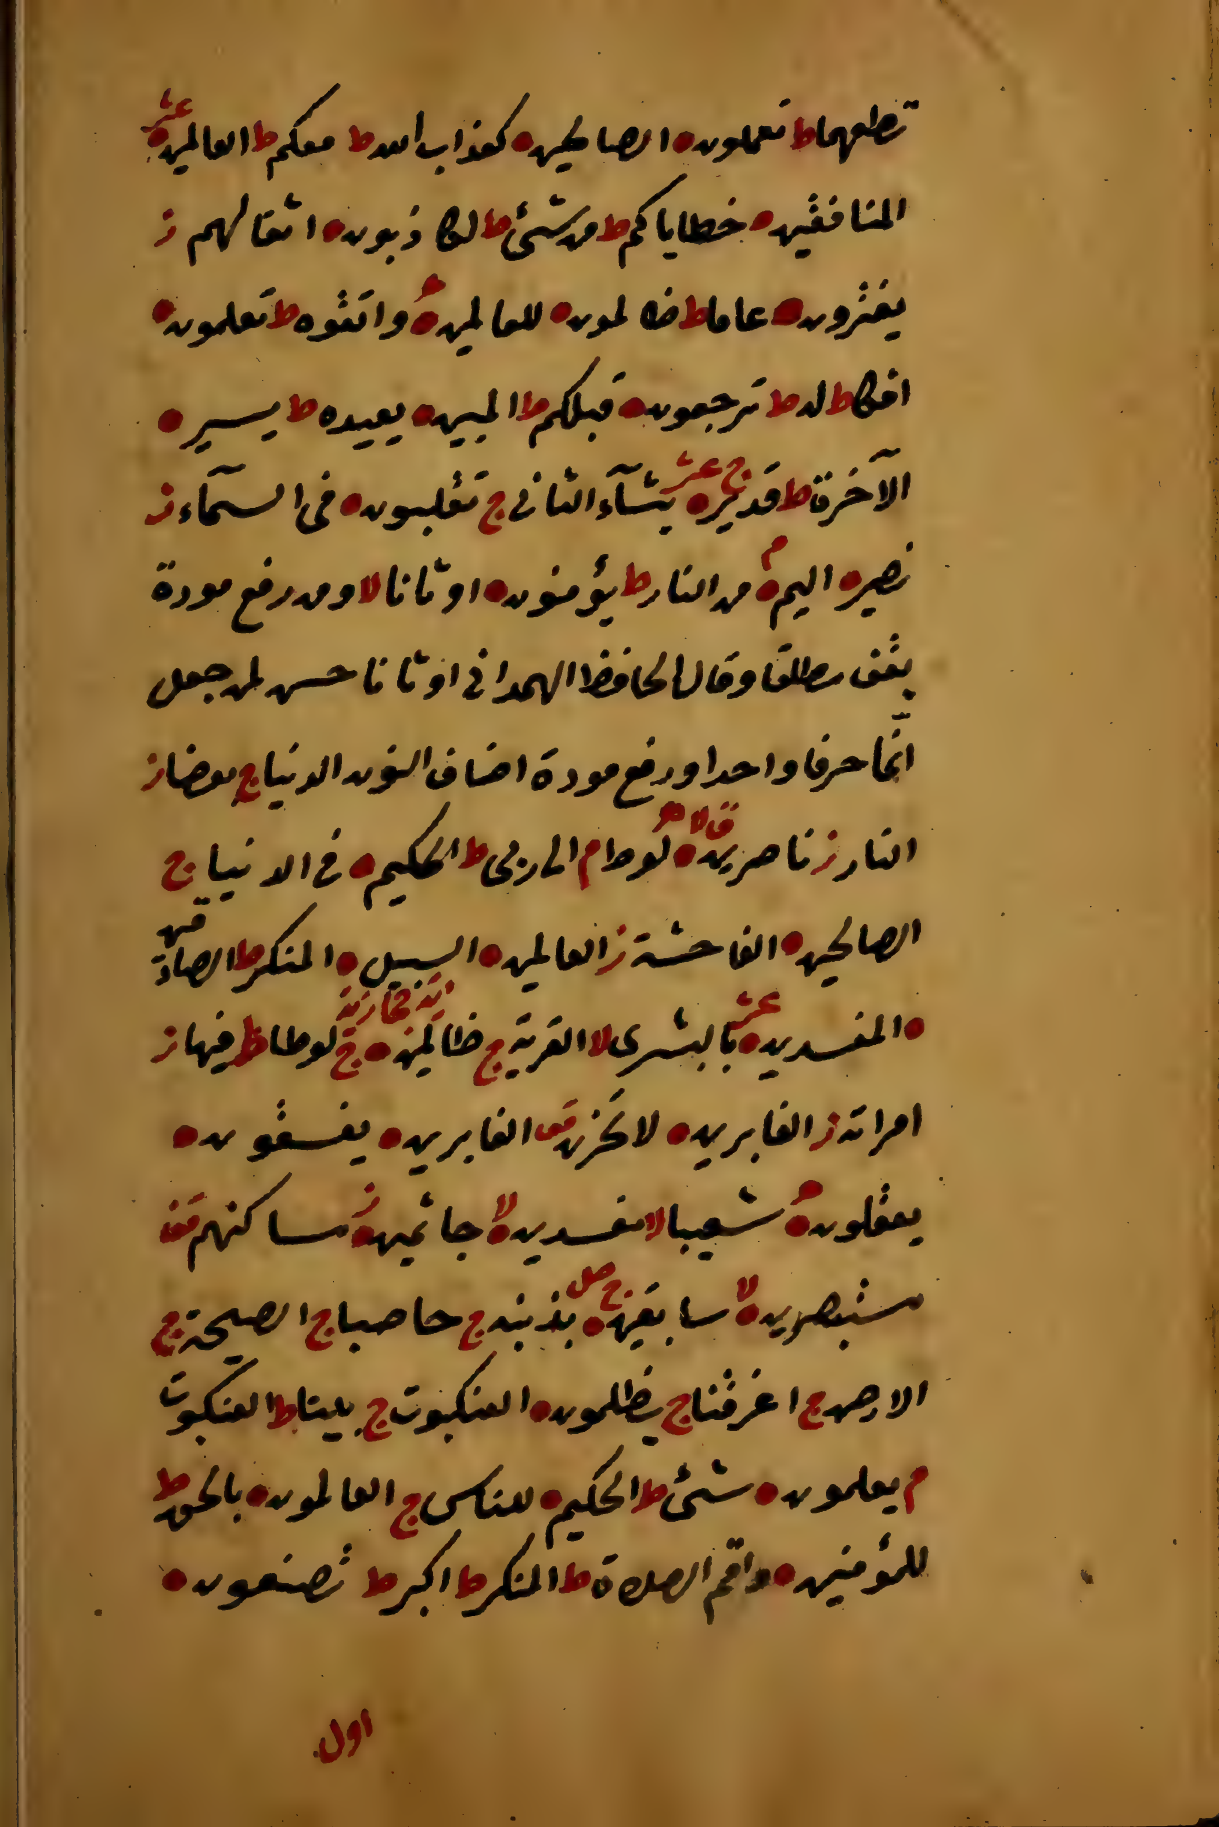 تطعهما ط تعملون ٥ الصالحين ٥ كعذاب الله ط معكم ط العالمين ٥ عشر
المنافقين ٥ خطاياكم ط من شئ ط لكاذبون ٥ اثقالهم ز
يفترون ٥ عاما ط ظالمون ٥ للعالمين ٥ واتقوه ط تعلمون ٥
افكا ط له ط ترجعون ٥ قبلكم ط المبين ٥ يعيده ط يسير ٥
الآخرة ط قدير ٥ ج عشر يشآء الثانى ج تقلبون ٥ فى السمآء ز
نصير ٥ اليم ٥ م من النار ط يؤمنون ٥ اوثانا لا ومن رفع مودة
يقف مطلقا وقال الحافظ الهمدانى اوثانا حسن لمن جعل
انما حرفا واحدا ورفع مودة اضاف النون الدنيا ج بعضا ز
النار ز ناصرين ٥ لوط م الى ربى ط الحكيم ٥ فى الدنيا ج
الصالحين ٥ الفاحشة ز العالمين ٥ السبيل ٥ المنكر ط الصادقين
٥ المفسدين ٥ عشر بالبشرى لا القرية ج ظالمين ٥ ج لوطا ط فيها ز
امراته ز الغابرين ٥ لا تحزن قف الغابرين ٥ يفسقون ٥
يعقلون ٥ شعيبا لا مفسدين ٥ لا جاثمين ٥ ز مساكنهم قف
مستبصرين ٥ لا سابقين ٥ ج صل بذنبه ج حاصبا ج الصيحة ج
الارض ج اغرقنا ج يظلمون ٥ العنكبوت ج بيتا ط العنكبوت
م يعلمون ٥ شئ ط الحكيم ٥ للناس ج العالمون ٥ بالحق ط
للمؤمنين ٥ واقم الصلاة ط المنكر ط اكبر ط تصنعون ٥
اول